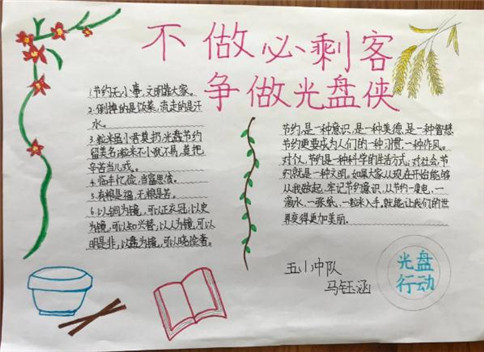 不做必剩客
争做光盘侠
1.节约无小事,文明靠大家。
2.倒掉的是饭菜,流走的是汗
水。
3.粒米虽小君莫扔,光盘节约
留美名,粒米不小做不易,莫把
辛苦当儿戏。
4.临丰忆俭,当富思法。
5.有粮是福,无粮是苦。
6.以铜为镜,可以正衣冠,以史
为镜,可以知兴替,以人为镜,可以
明是非,以盘为镜,可以晓俭奢。
节约,是一种意识,是一种美德,是一种智慧
节约更要成为人们的一种习惯,一种作风。
对你,节约是一种科学的生活方式,对社会,节
约就是一种文明。如果大家从现在开始能够
从我做起,牢记节约意识,从节约一度电,一
滴水,一张纸,一粒米入手,就能让我们的世
界变得更加美丽。
五1冲队
马钰涵
光盘
行动